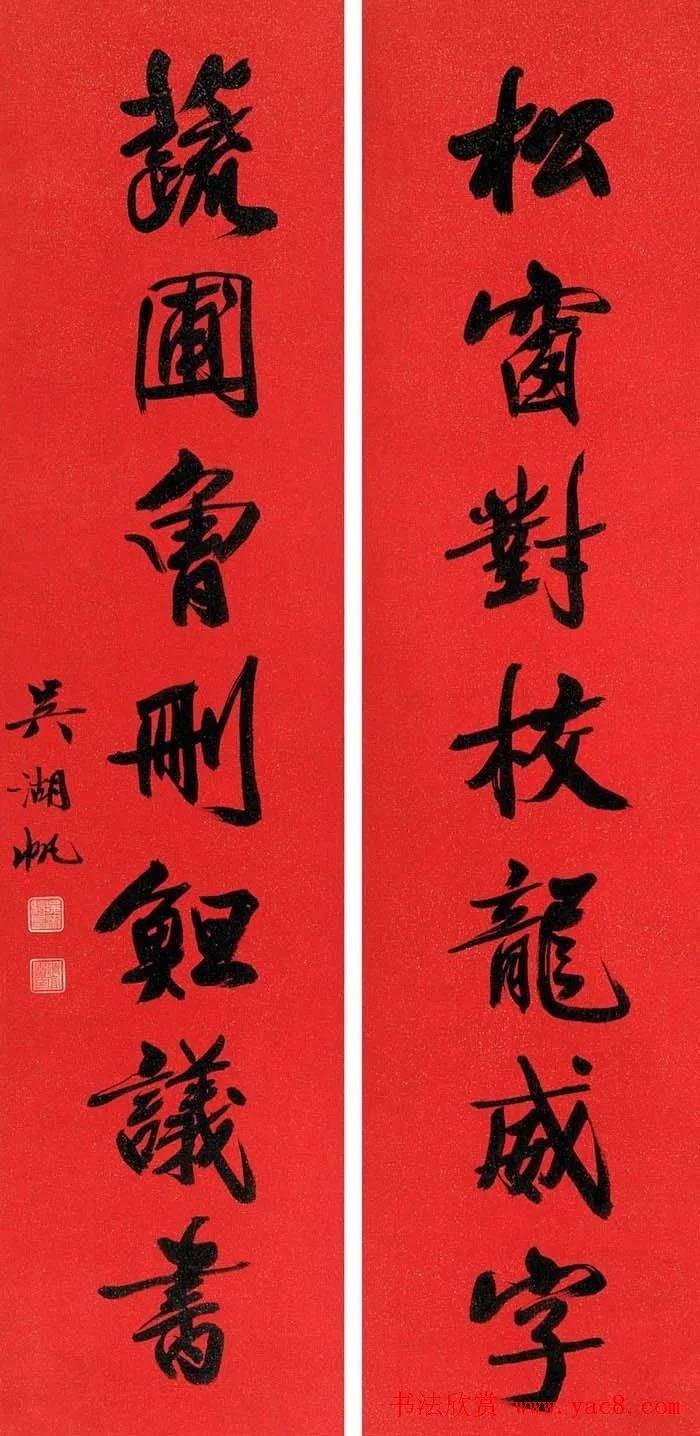 松窗對校龍威字
蔬圃曾刪議書
吳湖帆
书法欣赏 www.yac8.com